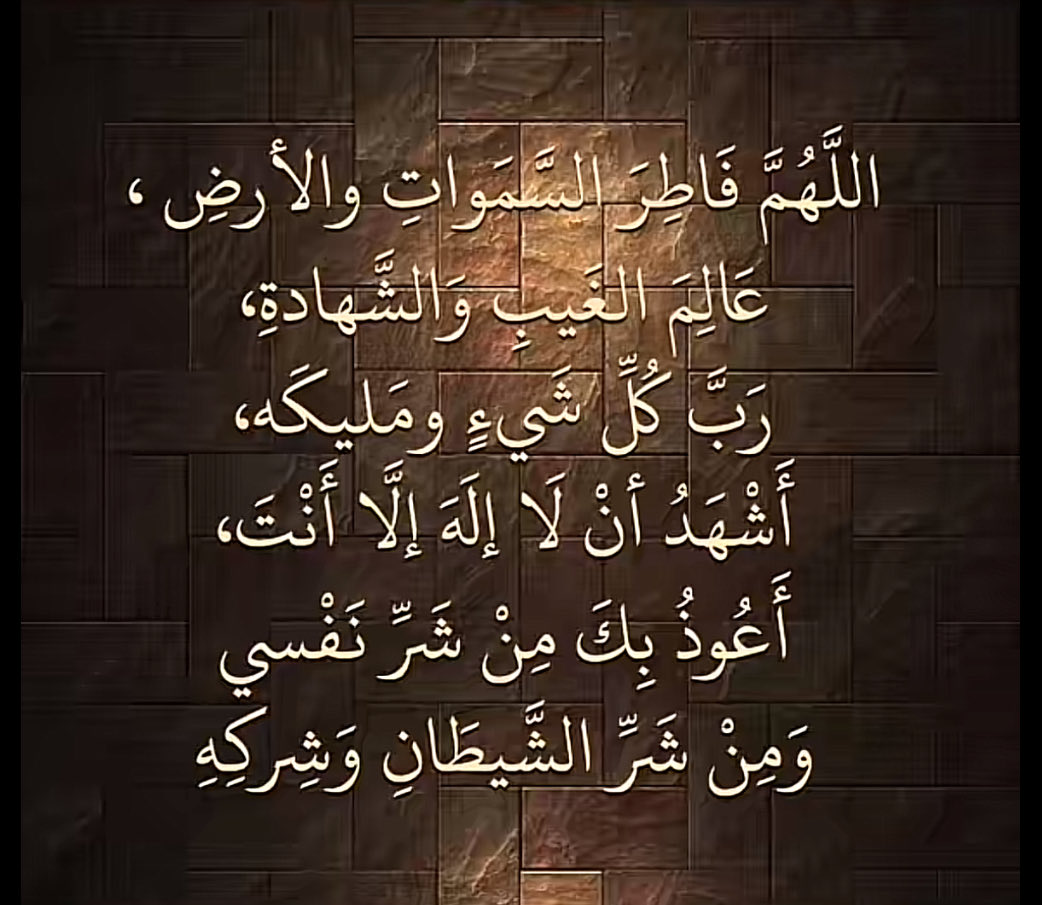 اللَّهُمَّ فَاطِرَ السَّمَواتِ والأرضِ ،
عَالِمَ الغَيبِ وَالشَّهادةِ،
رَبَّ كُلِّ شَيءٍ ومَليكَه،
أَشْهَدُ أنْ لَا إلَهَ إلَّا أَنْتَ،
أَعُوذُ بِكَ مِنْ شَرِّ نَفْسي
وَمِنْ شَرِّ الشَّيطَانِ وَشِركِهِ